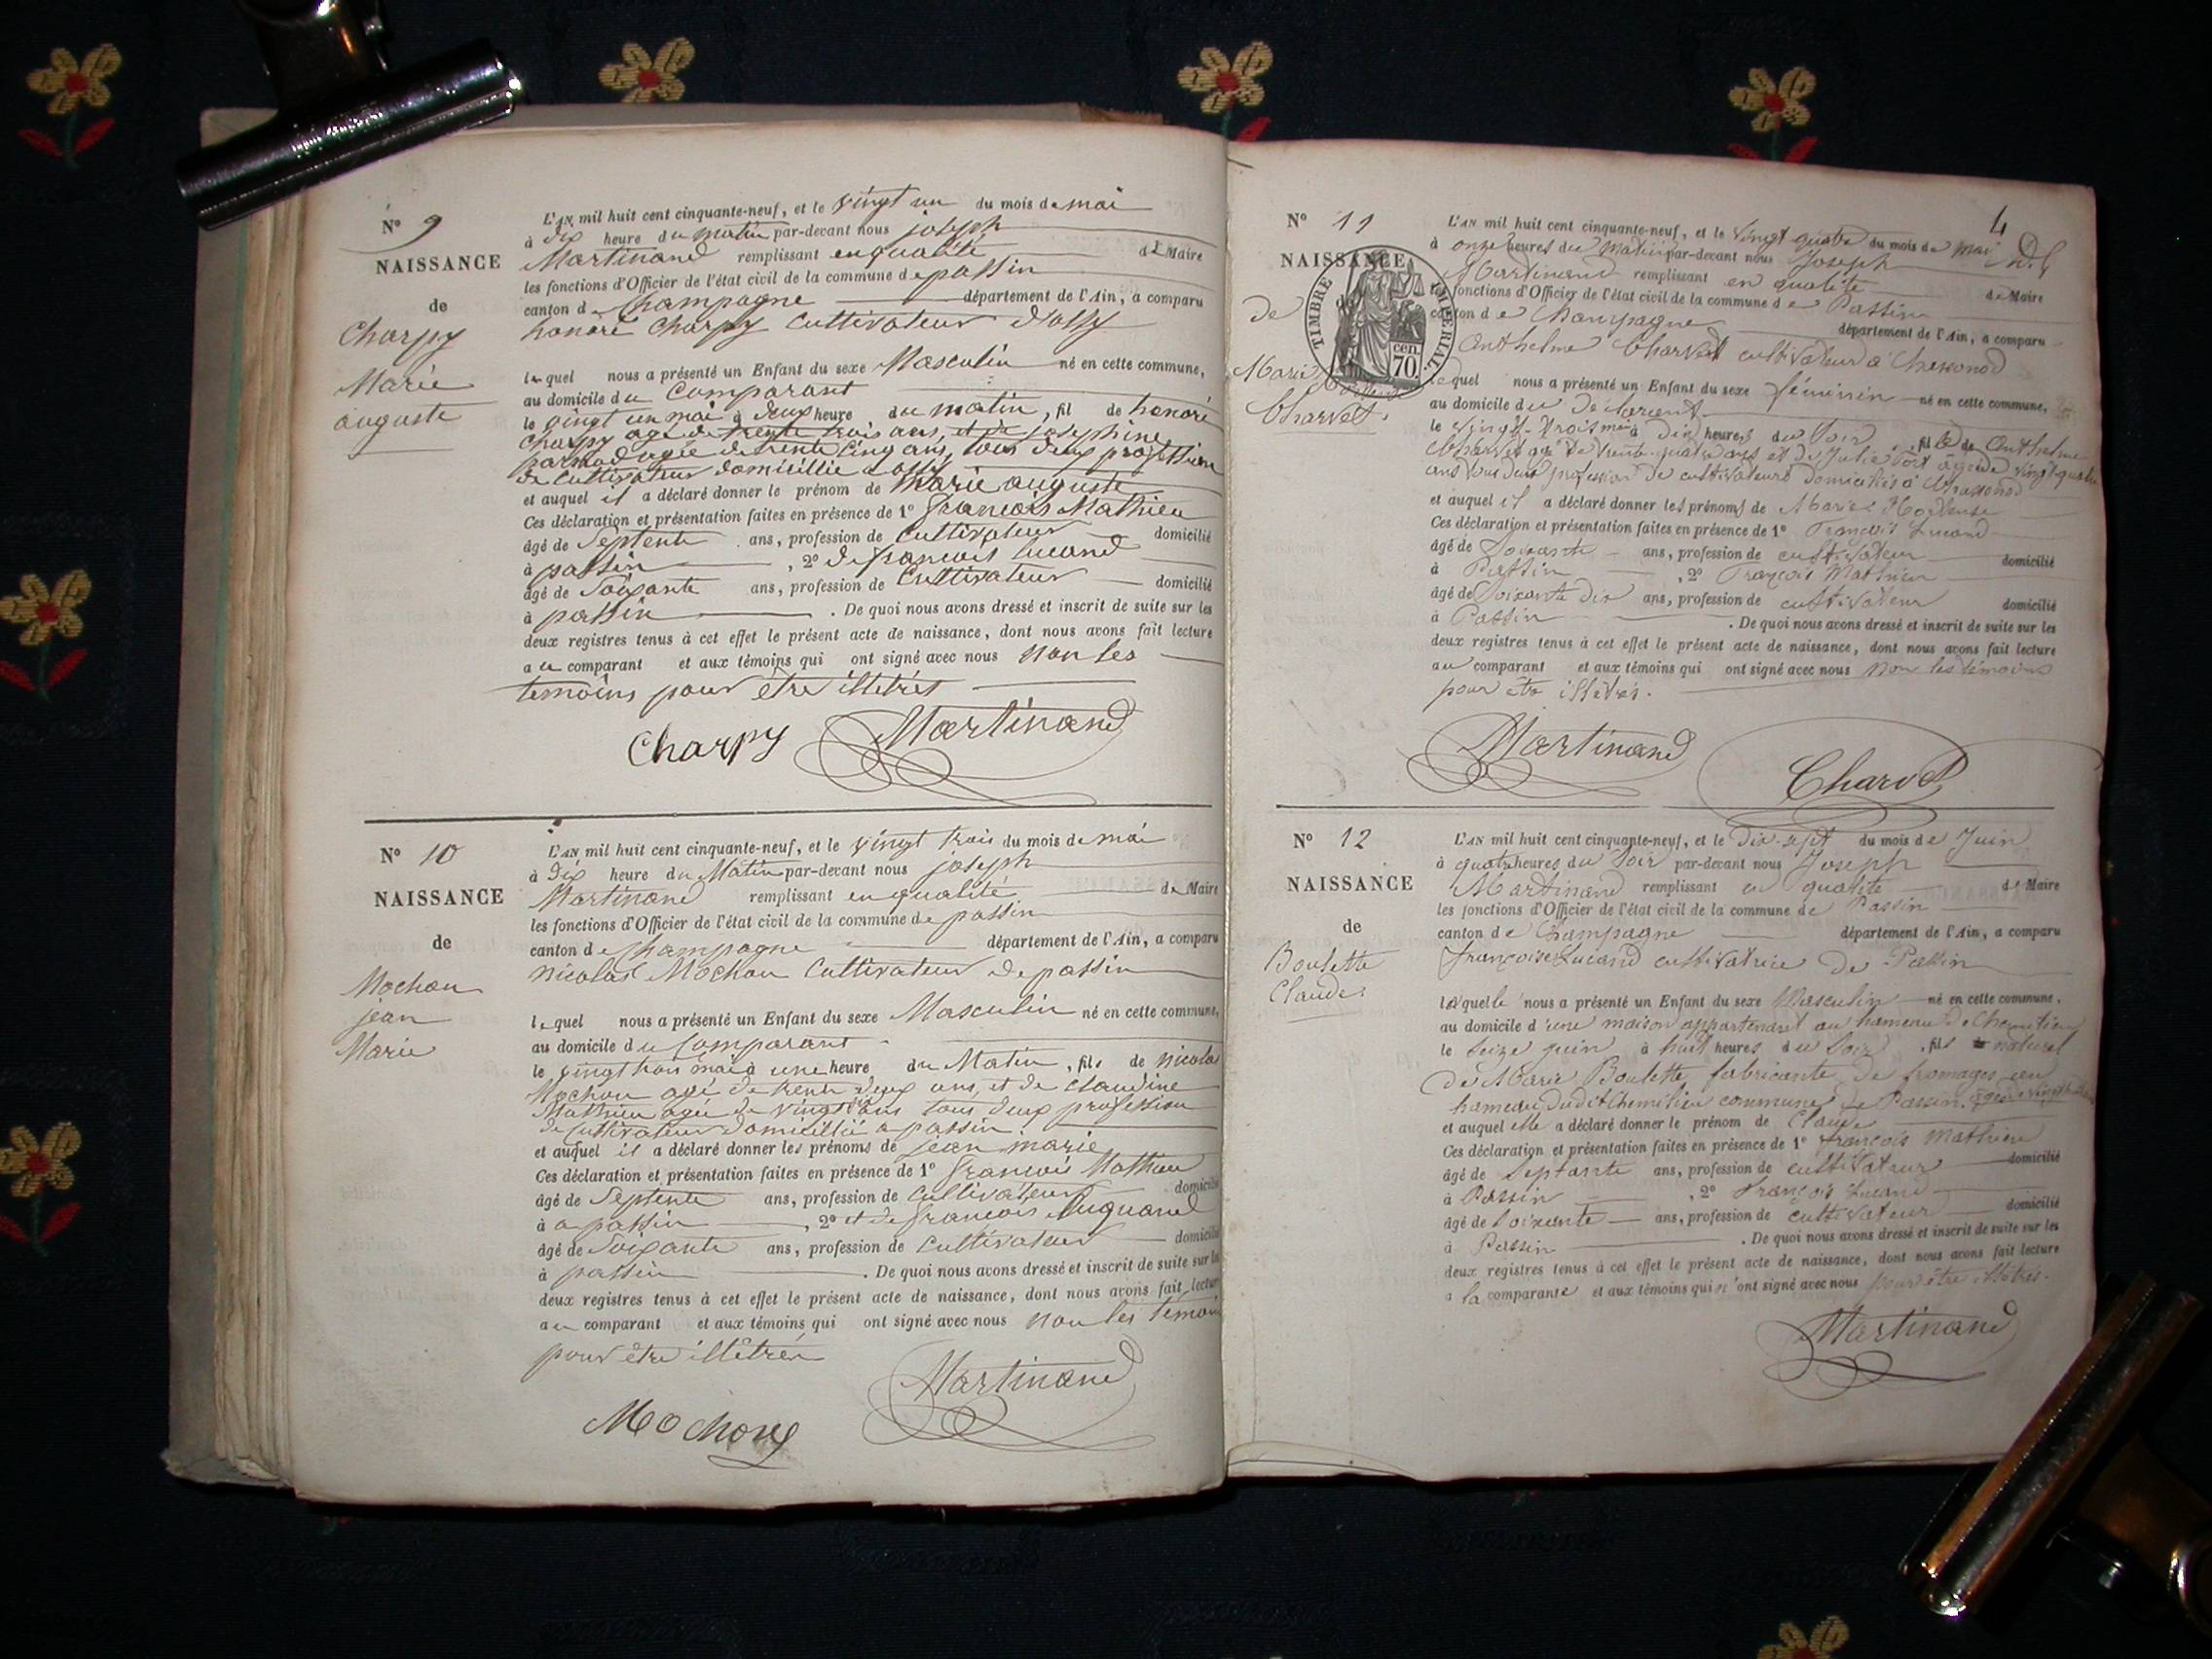 N° 9
NAISSANCE
de
Charpy
Marie
auguste
L'AN mil huit cent cinquante-neuf, et le vingt un du mois de mai
à dix heure du matin par-devant nous joseph
Martinand remplissant en qualité de Maire
les fonctions d'Officier de l'état civil de la commune de passin
canton de Champagne département de l'Ain, a comparu
honoré Charpy Cultivateur d'ossy
lequel nous a présenté un Enfant du sexe Masculin né en cette commune,
au domicile du Comparant
le vingt un mai à deux heure du matin, fil de honoré
Charpy age de trente trois ans, et de josephine
agée de trente cinq ans, tous deux profession
de cultivateur domicillié a ossy
et auquel il a déclaré donner le prénom de Marie auguste
Ces déclaration et présentation faites en présence de 1° francois Mathieu
âgé de Septente ans, profession de Cultivateur domicilié
à passin , 2° de francois lucand
âgé de Soixante ans, profession de Cultivateur domicilié
à passin . De quoi nous avons dressé et inscrit de suite sur les
deux registres tenus à cet effet le présent acte de naissance, dont nous avons fait lecture
au comparant et aux témoins qui ont signé avec nous non les
temoins pour être illetrés
Charpy Martinand
N° 10
NAISSANCE
de
Mochon
jean
Marie
L'AN mil huit cent cinquante-neuf, et le vingt trois du mois de mai
à dix heure du Matin par-devant nous joseph
Martinand remplissant en qualité de Maire
les fonctions d'Officier de l'état civil de la commune de passin
canton de Champagne département de l'Ain, a comparu
nicolas Mochon Cultivateur de passin
lequel nous a présenté un Enfant du sexe Masculin né en cette commune,
au domicile du Comparant
le vingt trois mai à une heure du Matin, fils de nicolas
Mochon agé de trente deux ans, et de claudine
Mathieu agée de vingt ans tous deux profession
de Cultivateur domicillié a passin
et auquel il a déclaré donner les prénoms de jean marie
Ces déclaration et présentation faites en présence de 1° francois Mathieu
âgé de Septente ans, profession de Cultivateur domicilié
à a passin , 2° et de francois luquand
âgé de Soixante ans, profession de Cultivateur domicilié
à passin . De quoi nous avons dressé et inscrit de suite sur les
deux registres tenus à cet effet le présent acte de naissance, dont nous avons fait lecture
au comparant et aux témoins qui ont signé avec nous non les témoin
pour être illétrés
Martinand
Mochon
4
N° 11
NAISSANCE
de
TIMBRE IMPERIAL
70 cen.
Marie
Charvet.
L'AN mil huit cent cinquante-neuf, et le vingt quatre du mois de mai
à onze heures du matin par-devant nous Joseph
Martinand remplissant en qualité de Maire
fonctions d'Officier de l'état civil de la commune de Passin
canton de Champagne département de l'Ain, a comparu
Anthelme Charvet cultivateur à Chassonod
lequel nous a présenté un Enfant du sexe féminin né en cette commune,
au domicile du déclarant
le vingt-trois mai à dix heures du Soir, fille de Anthelme
Charvet agé de trente-quatre ans et de Julie agée de vingt quatre
ans tous deux profession de cultivateurs domiciliés à Chassonod
et auquel il a déclaré donner les prénoms de Marie Hortense
Ces déclaration et présentation faites en présence de 1° François Lucand
âgé de Soixante ans, profession de cultivateur domicilié
à Passin , 2° François Mathieu
âgé de Soixante dix ans, profession de cultivateur domicilié
à Passin . De quoi nous avons dressé et inscrit de suite sur les
deux registres tenus à cet effet le présent acte de naissance, dont nous avons fait lecture
au comparant et aux témoins qui ont signé avec nous non les témoins
pour être illétrés.
Martinand Charvet
N° 12
NAISSANCE
de
Boulette
Claude.
L'AN mil huit cent cinquante-neuf, et le dix sept du mois de Juin
à quatre heures du Soir par-devant nous Joseph
Martinand remplissant en qualité de Maire
les fonctions d'Officier de l'état civil de la commune de Passin
canton de Champagne département de l'Ain, a comparu
françoise Lucand cultivatrice de Passin
laquelle nous a présenté un Enfant du sexe Masculin né en cette commune,
au domicile d'une maison appartenant au hameau de Chemilieu
le Seize juin à huit heures du Soir, fils naturel
de Marie Boulette fabricante de fromages au
hameau dudit Chemilieu commune de Passin. agée de vingt
et auquel elle a déclaré donner le prénom de Claude
Ces déclaration et présentation faites en présence de 1° françois Mathieu
âgé de Septante ans, profession de cultivateur domicilié
à Passin , 2° François Lucand
âgé de Soixante ans, profession de cultivateur domicilié
à Passin . De quoi nous avons dressé et inscrit de suite sur les
deux registres tenus à cet effet le présent acte de naissance, dont nous avons fait lecture
a la comparante et aux témoins qui n'ont signé avec nous pour être illétrés.
Martinand